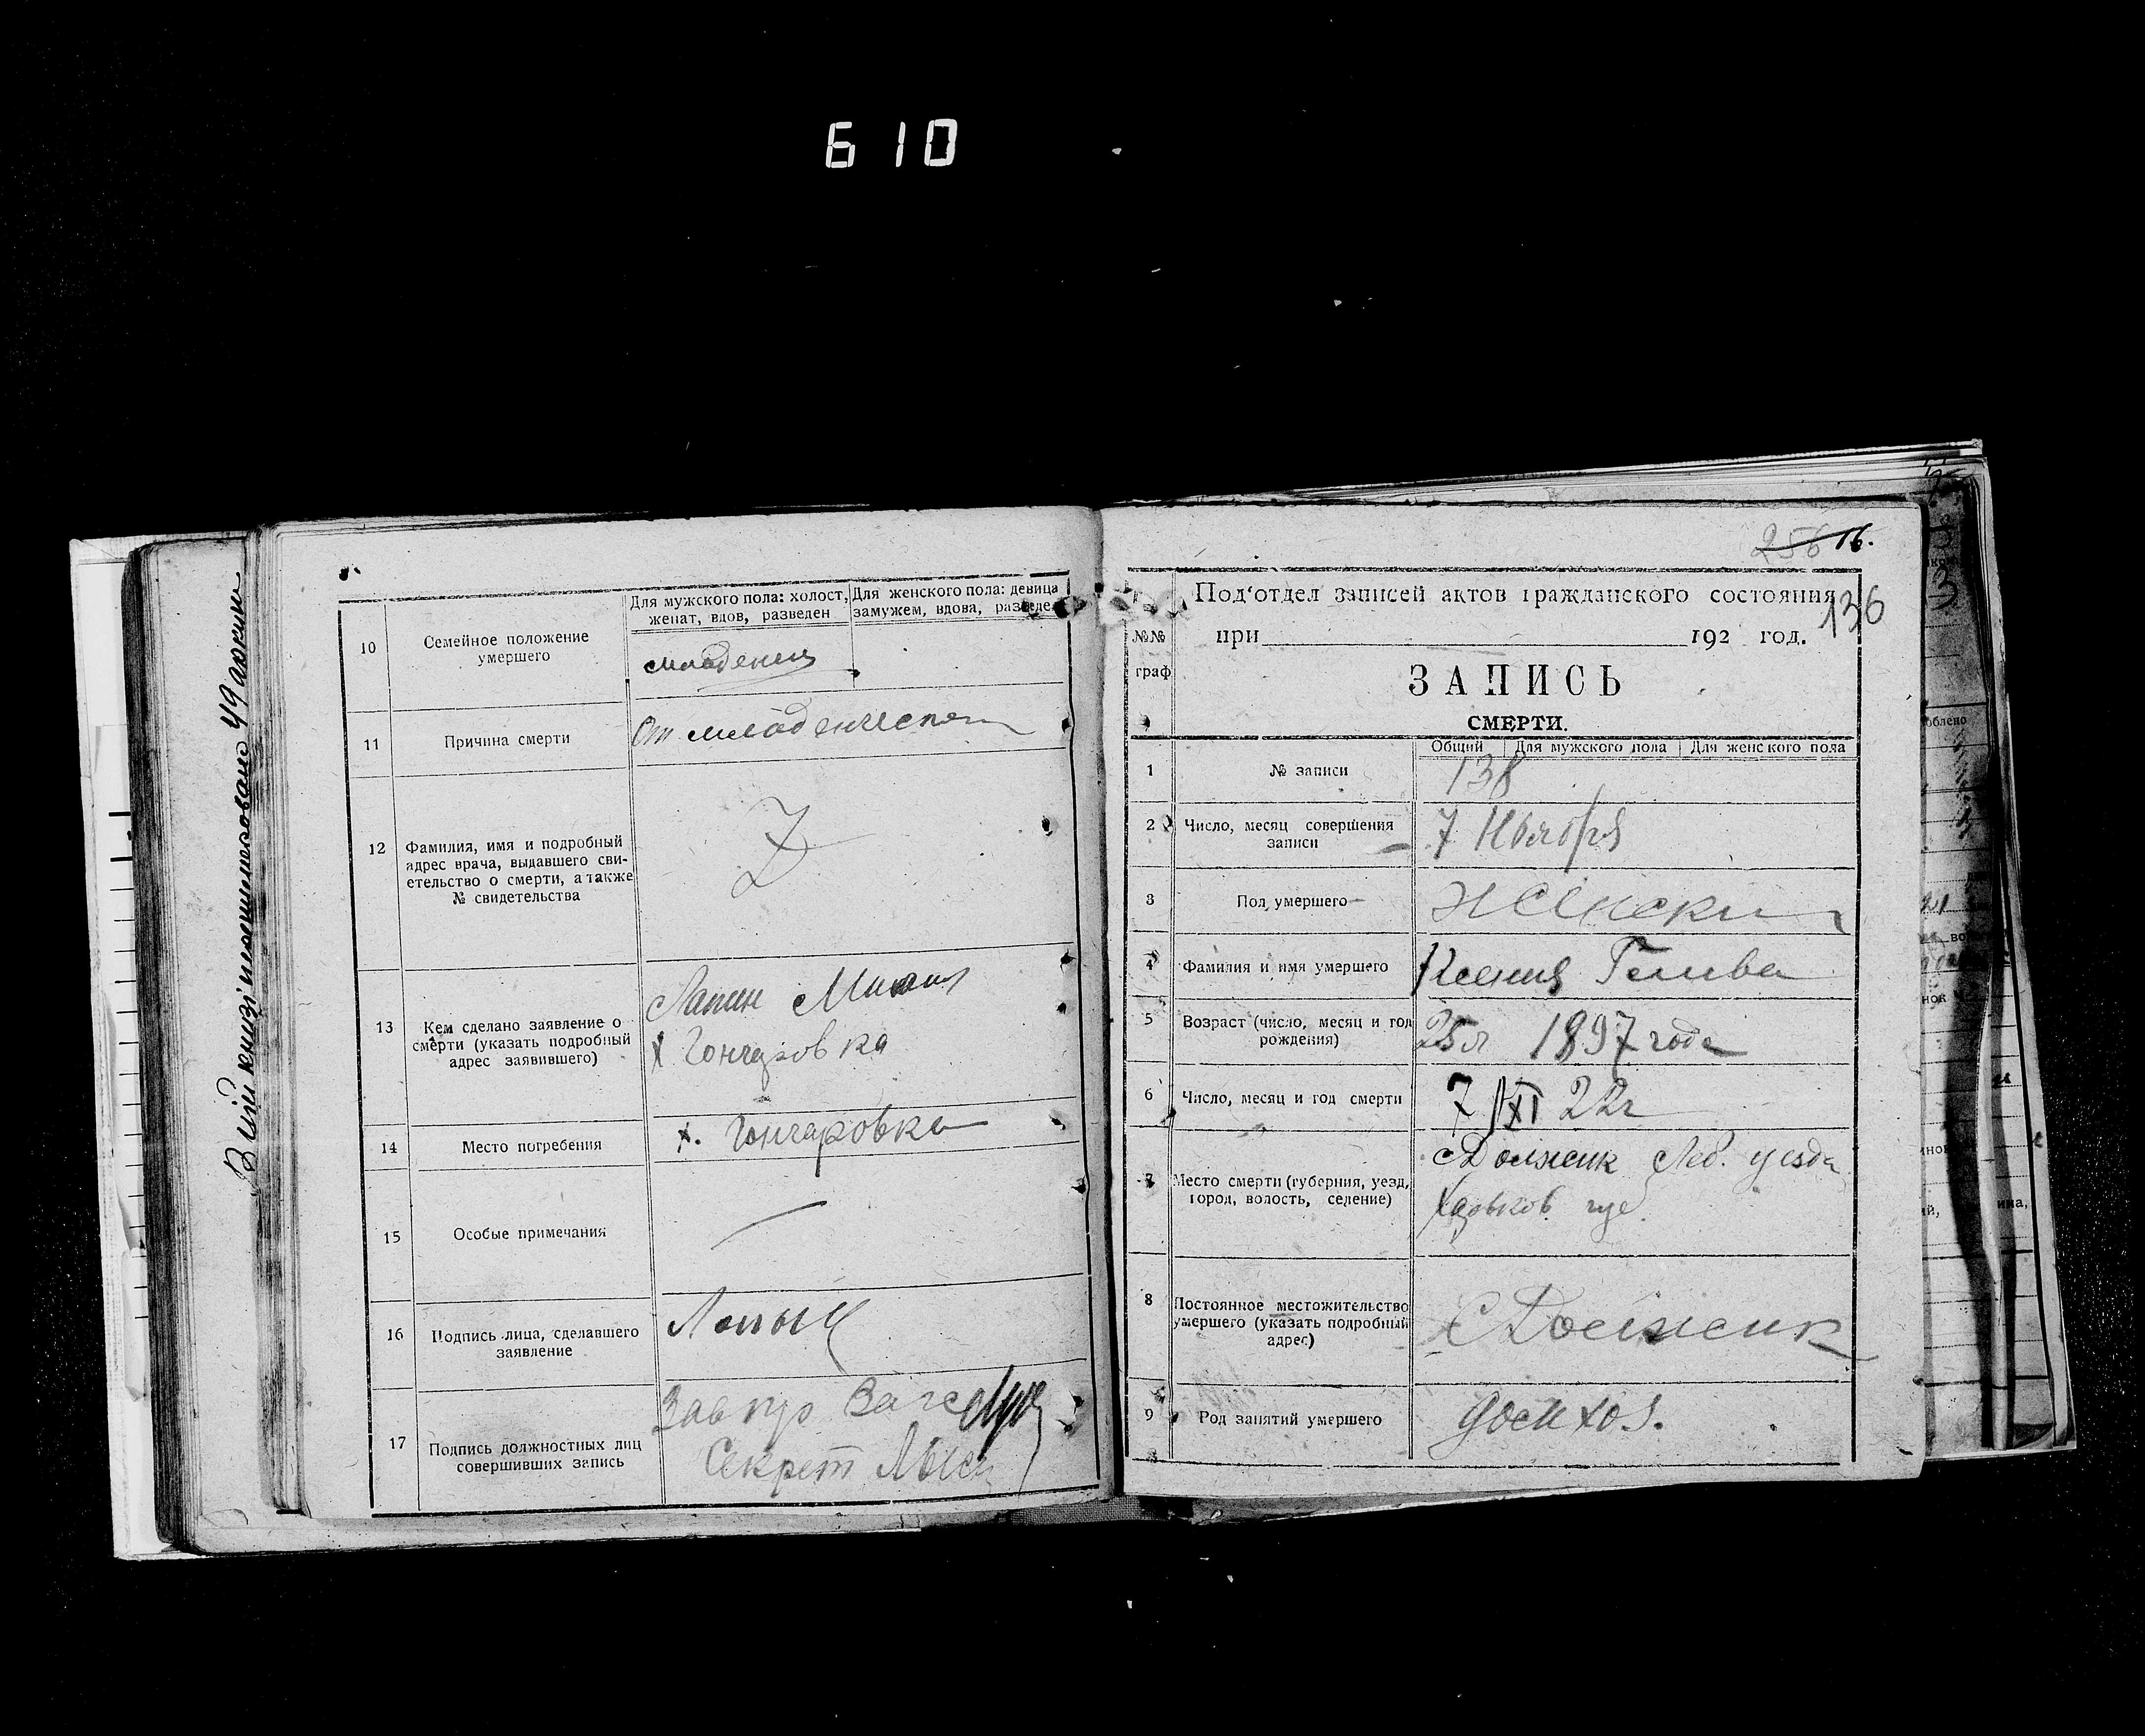 610
В цій книзі пронумеровано 49 аркуш
10
Семейное положение
умершего
Для мужского пола: холост,
женат, вдов, разведен
Для женского пола: девица
замужем, вдова, разведе
младенец
11
Причина смерти
От младенческ
12
Фамилия, имя и подробный
адрес врача, выдавшего сви-
етельство о смерти, а также
№ свидетельства
Z
13
Кем сделано заявление о
смерти (указать подробный
адрес заявившего)
Лапин Михаил
х Гончаровка
14
Место погребения
х. Гончаровка
15
Особые примечания
16
Подпись лица, сделавшего
заявление
17
Подпись должностных лиц
совершивших запись
Секрет
256 16.
136
№№
граф
Под'отдел записей актов гражданского состояния
при 192 год.
ЗАПИСЬ
СМЕРТИ.
Общий Для мужского пола Для женского пола
1
№ записи
138
2
Число, месяц совершения
записи
7 Ноября
3
Пол умершего
Женски
4
Фамилия и имя умершего
Ксения
5
Возраст (число, месяц и год
рождения)
25л 1897 года
6
Число, месяц и год смерти
7/XI 22г
7
Место смерти (губерния, уезд,
город, волость, селение)
с Должик Леб. уезда
Харьков. губ.
8
Постоянное местожительство
умершего (указать подробный
адрес)
с Должик
9
Род занятий умершего
домхоз.